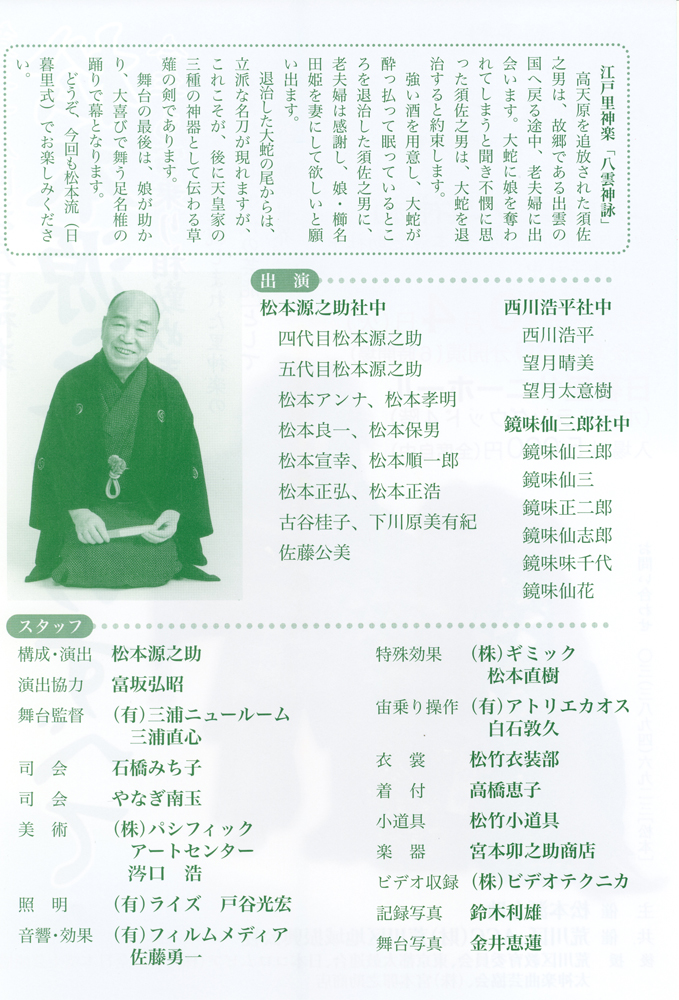 江戸里神楽「八雲神詠」
高天原を追放された須佐
之男は、故郷である出雲の
国へ戻る途中、老夫婦に出
会います。大蛇に娘を奪わ
れてしまうと聞き不憫に思
った須佐之男は、大蛇を退
治すると約束します。
強い酒を用意し、大蛇が
酔っ払って眠っているとこ
ろを退治した須佐之男に、
老夫婦は感謝し、娘・櫛名
田姫を妻にして欲しいと願
い出ます。
退治した大蛇の尾からは、
立派な名刀が現れますが、
これこそが、後に天皇家の
三種の神器として伝わる草
薙の剣であります。
舞台の最後は、娘が助か
り、大喜びで舞う足名椎の
踊りで幕となります。
どうぞ、今回も松本流(日
暮里式)でお楽しみくださ
い。
出演
松本源之助社中
四代目松本源之助
五代目松本源之助
松本アンナ、松本孝明
松本良一、松本保男
松本宣幸、松本順一郎
松本正弘、松本正浩
古谷桂子、下川原美有紀
佐藤公美
西川浩平社中
西川浩平
望月晴美
望月太意樹
鏡味仙三郎社中
鏡味仙三郎
鏡味仙三
鏡味正二郎
鏡味仙志郎
鏡味味千代
鏡味仙花
スタッフ
構成・演出 松本源之助
演出協力 富坂弘昭
舞台監督 (有)三浦ニュールーム
三浦直心
司会 石橋みち子
司会 やなぎ南玉
美術 (株)パシフィック
アートセンター
澪口 浩
照明 (有)ライズ 戸谷光宏
音響・効果 (有)フィルムメディア
佐藤勇一
特殊効果 (株)ギミック
松本直樹
宙乗り操作 (有)アトリエカオス
白石敦久
衣裳 松竹衣装部
着付 高橋恵子
小道具 松竹小道具
楽器 宮本卯之助商店
ビデオ収録 (株)ビデオテクニカ
記録写真 鈴木利雄
舞台写真 金井恵蓮